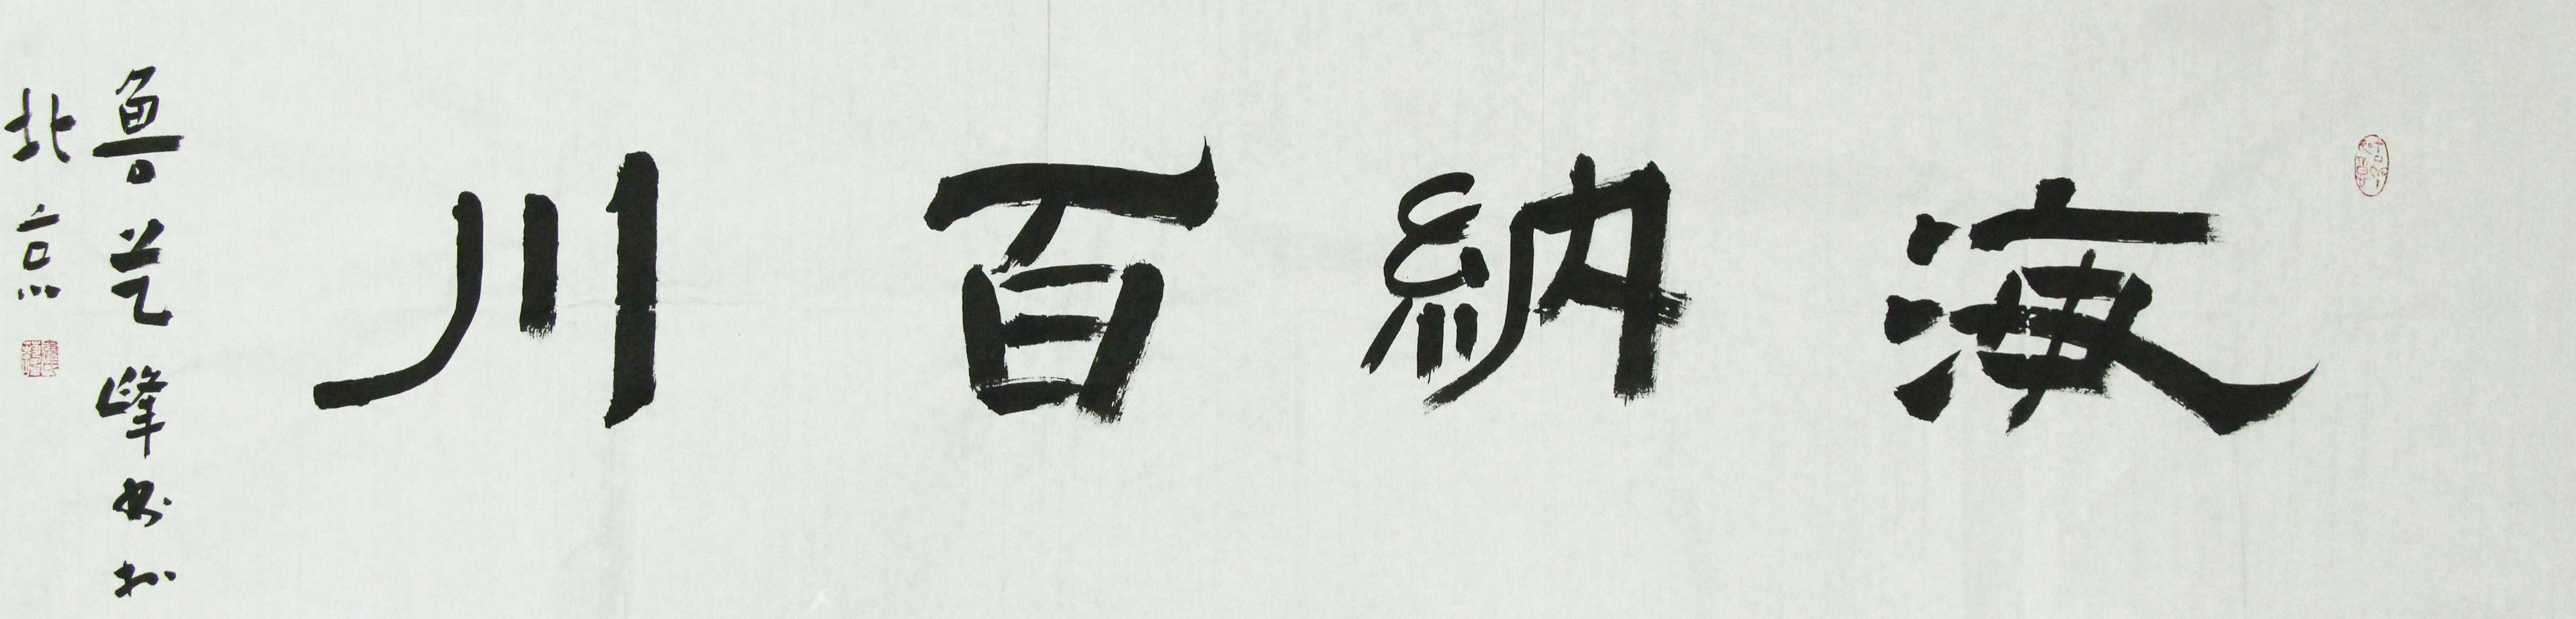 海納百川
魯艺峰书於
北京